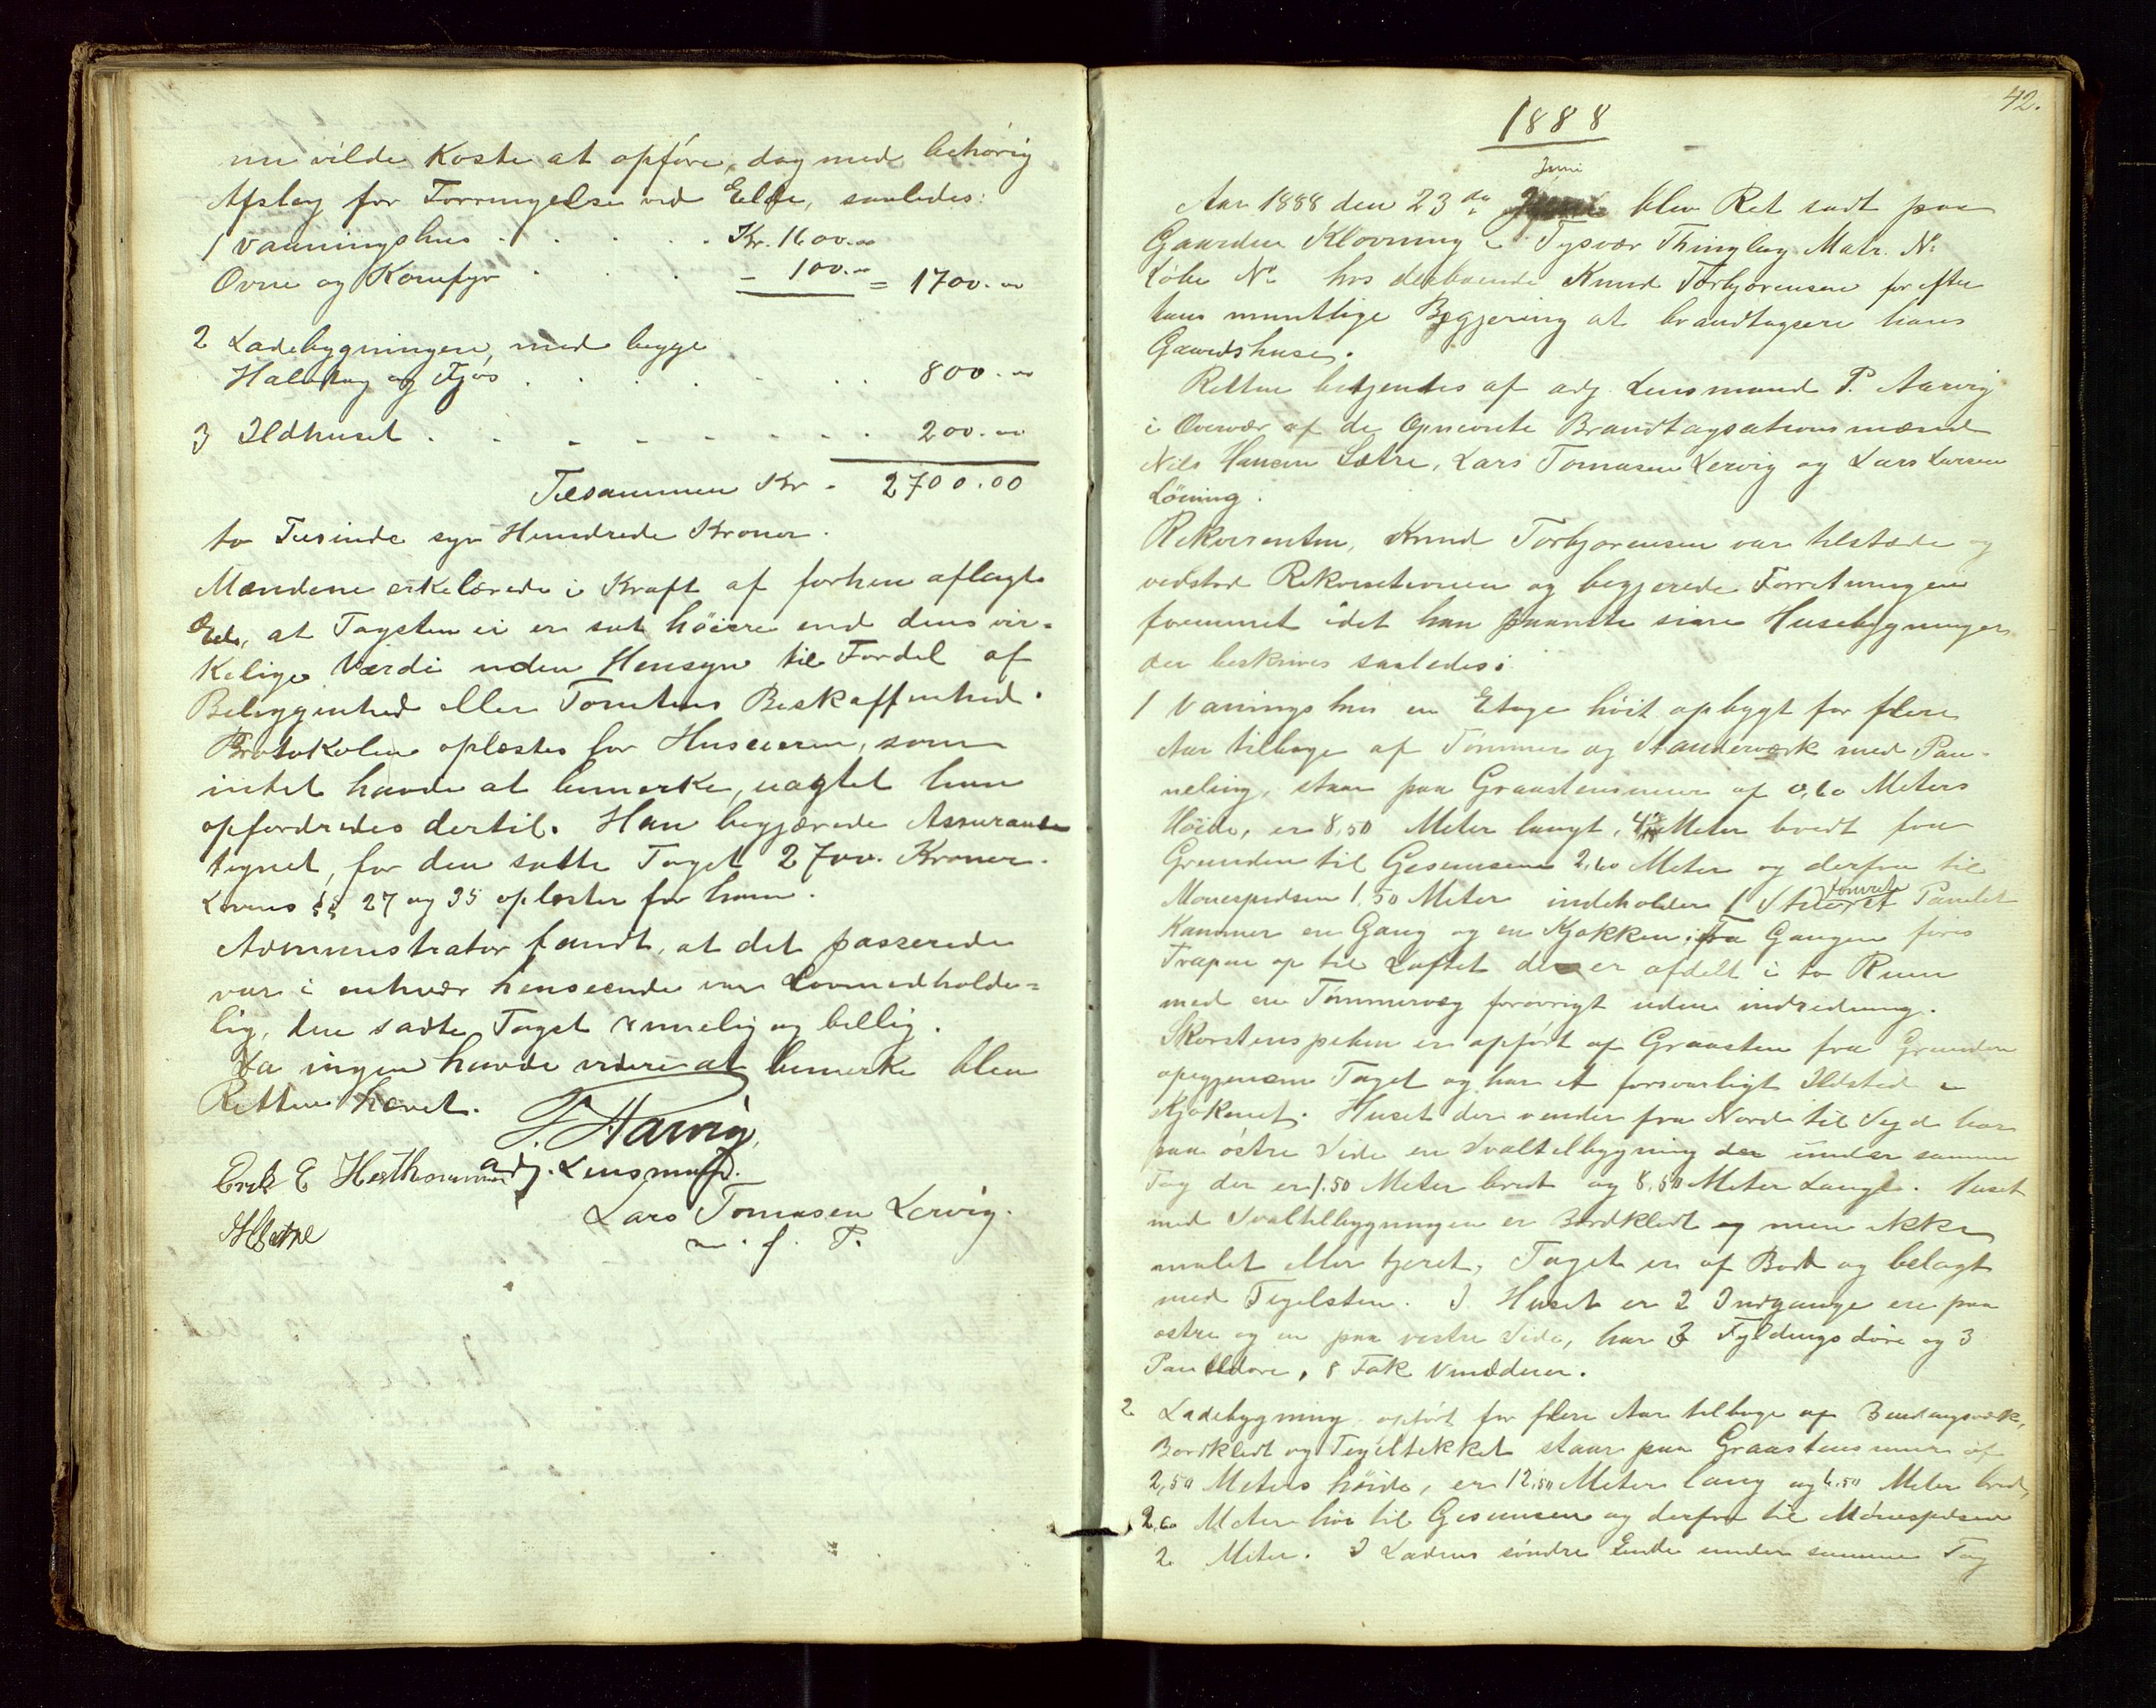 nu vilde Koste at opføre, dog med behørig
Afslag for Forringelse ved Elde, saaledes:
1 Vaaningshus . . . . . Kr. 1600.00
Ovne og Komfyr . . . – 100.00 = 1700.00
2 Ladebygningen, med begge
Halvtag og Fjøs . . . . . . 800.00
3 Ildhuset . . . . . . . . 200.00
Tilsammen Kr. 2700.00
to Tusinde syv Hundrede Kroner.
Mændene erkelærede i Kraft af forhen aflagt
Eed, at Taxten ei er sat høiere end dens vir=
kelige Værdi uden Hensyn til Fordel af
Beliggenhed eller Tomtens Beskaffenhed.
Protokolen oplæstes for Huseieren, som
intet havde at bemerke, uagtet han
opfordredes dertil. Han begjærede Assurance
tegnet, for den satte Taxt 2700. Kroner.
Lovens §§ 27 og 35 oplæstes for ham.
Administrator fandt, at det passerede
var i enhvær henseende var Lovmedholde=
lig, den satte Taxt rimelig og billig.
Da ingen havde videre at bemerke blev
Retten hævet.
P. Aarvig,
adj. Lensmand.
Erik E Hesthammer
Lars Tomasen Lervig.
m. f. P.
NHSætre
42.
1888
Juni
Aar 1888 den 23de blev Ret sadt paa
Gaarden Klovning i Tysvær Thinglag Matr. No
Løbe No hos deboende Knud Torbjørensen for efter
hans muntlige Begjering at brandtaxere hans
Gaardshuse.
Retten betjentes af adj. Lensmand P. Aarvig
i Overvær af de Opnevnte Brandtaxationsmænd
Nils Hansen Sætre, Lars Tomasen Lervig og Lars Larsen
Løning.
Rekvirenten, Knud Torbjørensen var tilstæde og
vedstod Rekvisitionen og begjerede Forretningen
fremmet idet han paaviste sine Husebygninger
der beskrives saaledes:
1 Vaaningshus en Etage høit opbygt for flere
Aar tilbage af Tømmer og Standerværk med Pan-
neling, staar paa Graastensmur af 0,60 Meters
Høide, er 8,50 Meter langt, Meter bredt fra
Grunden til Gesimsen 2,60 Meter og derfra til
Mønespidsen 1,50 Meter indeholder 1 Stue Panelet
Kammer en Gang og en Kjøkken, fra Gangen føres
Trapen op til Loftet der er afdelt i to Rum
med en Tømmervæg forøvrigt uden indredning.
Skorstenspiben er opført af Graasten fra Grunden
opigjenem Taget og har et forsvarligt Ildsted i
Kjøkenet. Huset der vender fra Nord til Syd har
paa østre Side en Svaltilbygning der under samme
Tag der er 1.50 Meter bredt og 8,50 Meter Langt. Huset
med Svaltilbygningen er Bordkledt og men ikke
malet eller tjeret, Taget er af Bord og belagt
med Tegelsten. I Huset er 2 Indgange en paa
østre og en paa vestre Side, har 3 Fyldingsdøre og 3
Paneldøre, 8 Fak Vindduer.
2 Ladebygning opført for flere Aar tilbage af Bindingsverk,
Bordkledt og Tegeltekket staar paa Graastensmur af
2,50 Meters høide, er 12,50 Meter lang og 6,50 Meter bred,
2,60 Meter høi til Gesimsen og derfra til Mønespidsen
2 Meter. I Ladens søndre Ende under samme Tag